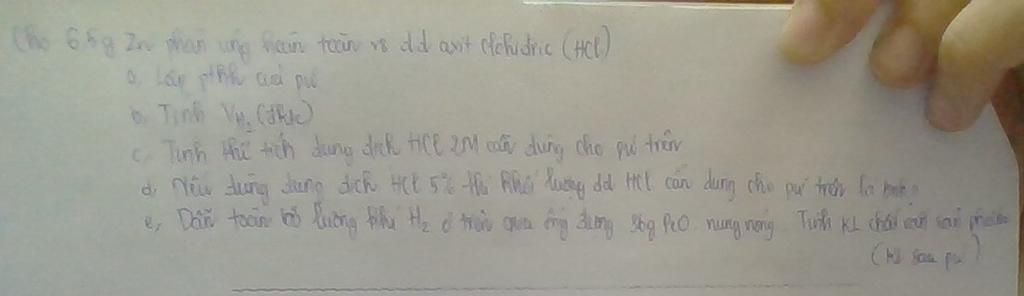 Cho 6.5g Zn phản ứng hoàn toàn vs dd axit clohidric (HCl)
a, Lập pthh của pứ
b, Tính V H₂ (đktc)
c, Tính thể tích dung dịch HCl 2M cần dùng cho pứ trên
d, Nếu dùng dung dịch HCl 5% thì khối lượng dd HCl cần dùng cho pứ trên là
e, Dẫn toàn bộ lượng khí H₂ ở trên qua ống đựng nung nóng. Tính KL chất
(KL sau pứ)